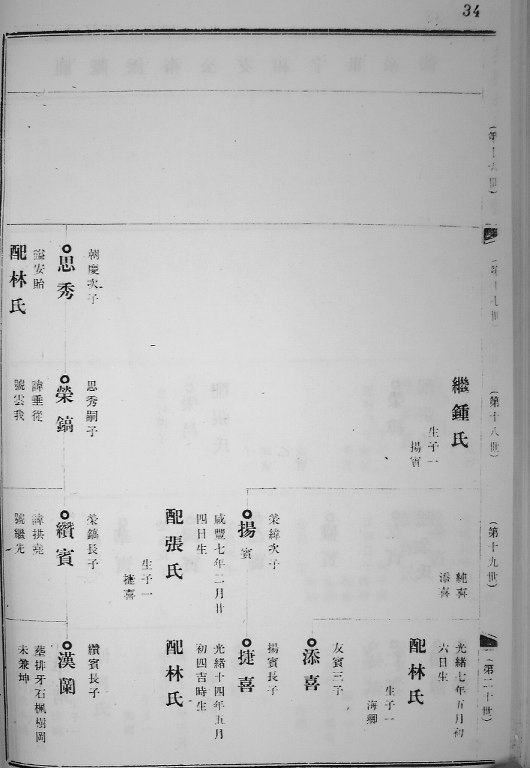 34
(第十六世)
(第十七世)
朝慶次子
思秀
諡安貽
配林氏
(第十八世)
繼鍾氏
生子一
揚賓
思秀嗣子
榮鎬
諱垂從
號雲我
(第十九世)
純喜
添喜
榮緯次子
揚賓
咸豐七年二月廿
四日生
配張氏
生子一
捷喜
榮鎬長子
纘賓
諱拱堯
號繼先
(第二十世)
光緒七年五月初
六日生
配林氏
生子一
海卿
友賓三子
添喜
揚賓長子
捷喜
光緒十四年五月
初四吉時生
配林氏
纘賓長子
漢蘭
墓排牙石楓樹岡
未兼坤